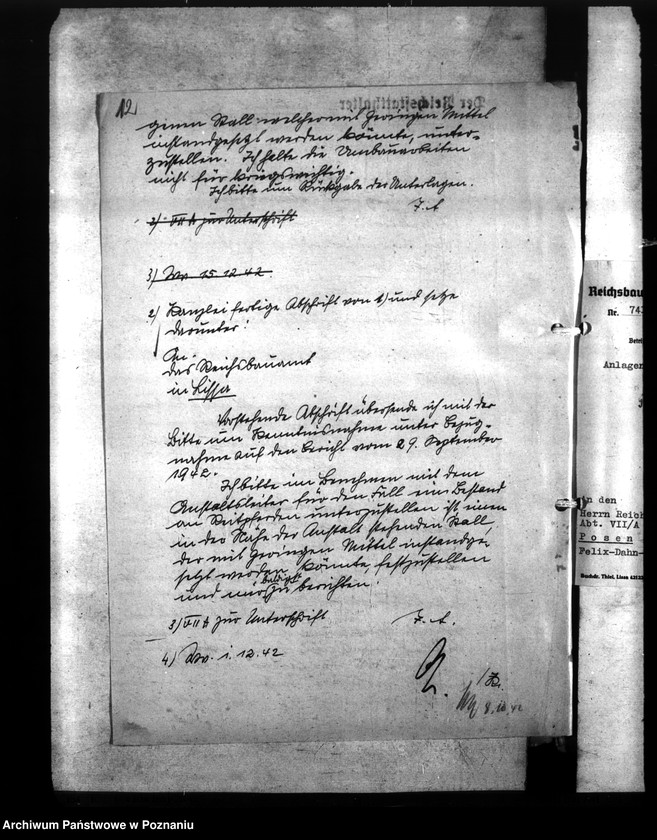 12
genen Stall welcher mit geringen Mittel
instandgesetzt werden könnte, unter-
zustellen. Ich halte die Umbauarbeiten
nicht für kriegswichtig.
Ich bitte um Rückgabe der Unterlagen.
I.A
2) VII A zur Unterschrift
3) Wv. 15.12.42.
2) Kanzlei fertige Abschrift von 1) und setze
darunter:
An
das Reichsbauamt
in Lissa
Vorstehende Abschrift übersende ich mit der
Bitte um Kenntnisnahme unter Bezug-
nahme auf den Bericht vom 29. September
1942.
Ich bitte im Benehmen mit dem
Anstaltsleiter für den Fall ein Bestand
an Nutzpferden unterzustellen ist einen
in der Nähe der Anstalt stehenden Stall,
der mit geringen Mittel instandge-
setzt werden könnte, festzustellen
und mir baldigst zu berichten.
3) VII A zur Unterschrift
I.A.
4) Wv. 1.12.42
8.10.42
Der Reichsstatthalter
Reichsbau
Nr. 74
Anlagen
An den
Herrn Reich
Abt. VII/A
Posen
Felix-Dahn-
Archiwum Państwowe w Poznaniu